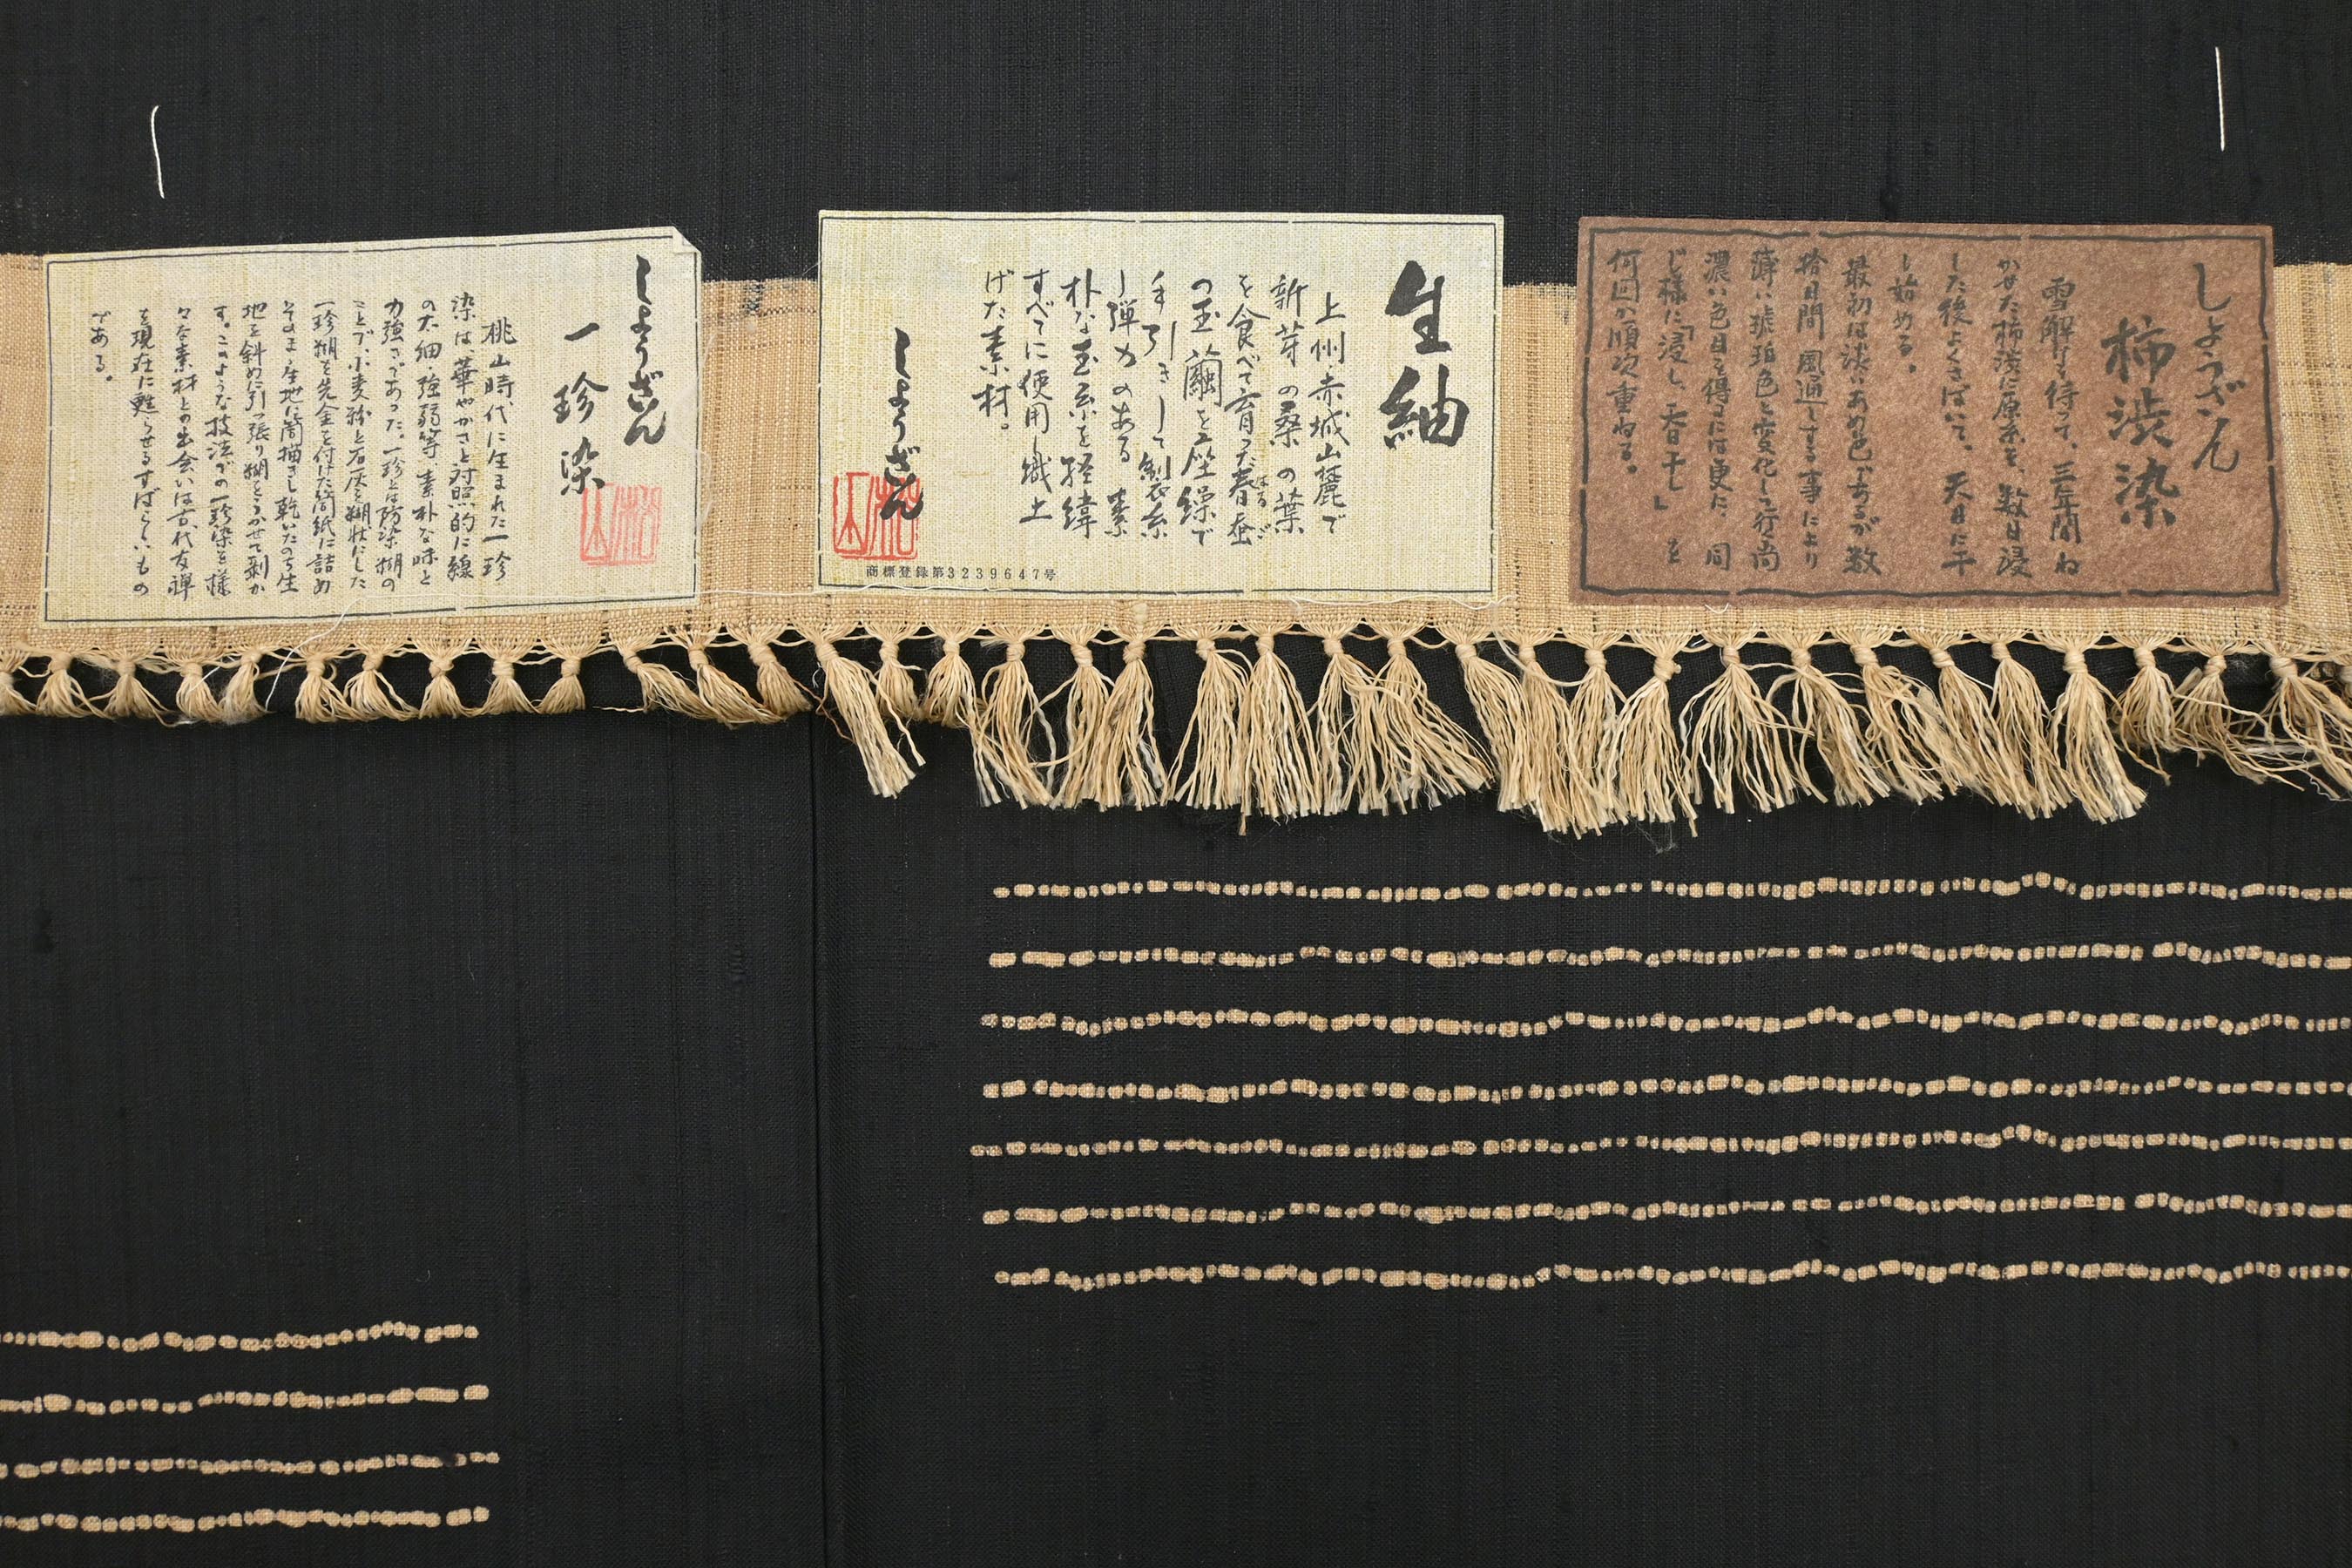 しょうざん
柿渋染
雪解けを待って、三年間ね
かせた柿渋に原糸を数日浸
した後よくさばいて、天日に干
し始める。
最初は淡いあめ色であるが数
拾日間風通しする事により
薄い琥珀色と変化して行く尚
濃い色目を得るには更に、同
じ様に「浸し、天日干し」を
何回か順次重ねる。
生紬
上州・赤城山麓で
新芽の桑の葉
を食べて育った春蚕
はるご
の玉繭を座繰で
手引きして製糸
し弾力のある素
朴な玉糸を経緯
すべてに使用し織上
げた素材。
しょうざん
松山
商標登録第3239647号
しょうざん
一珍染
松山
桃山時代に生まれた一珍
染は華やかさと対照的に線
の太細・強弱等、素朴な味と
力強さであった。一珍とは防染糊の
ことで、小麦粉と石灰を糊状にした
一珍糊を先金を付けた筒紙に詰め
そのまま生地に筒描きし乾いたのち生
地を斜めに引っ張り糊をうかせて剥が
す。このような技法での一珍染と様
々な素材との出会いは古代友禅
を現在に甦らせるすばらしいもの
である。